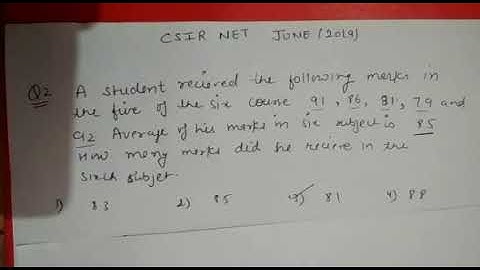 CSIR NET JUNE (2019)
Q2 A student recieved the following marks in
the five of the six course 91, 86, 81, 79 and
92 Average of his marks in six subject is 85
How many marks did he recieve in the
sixth subjet.
1) 83 2) 85 3) 81 4) 88